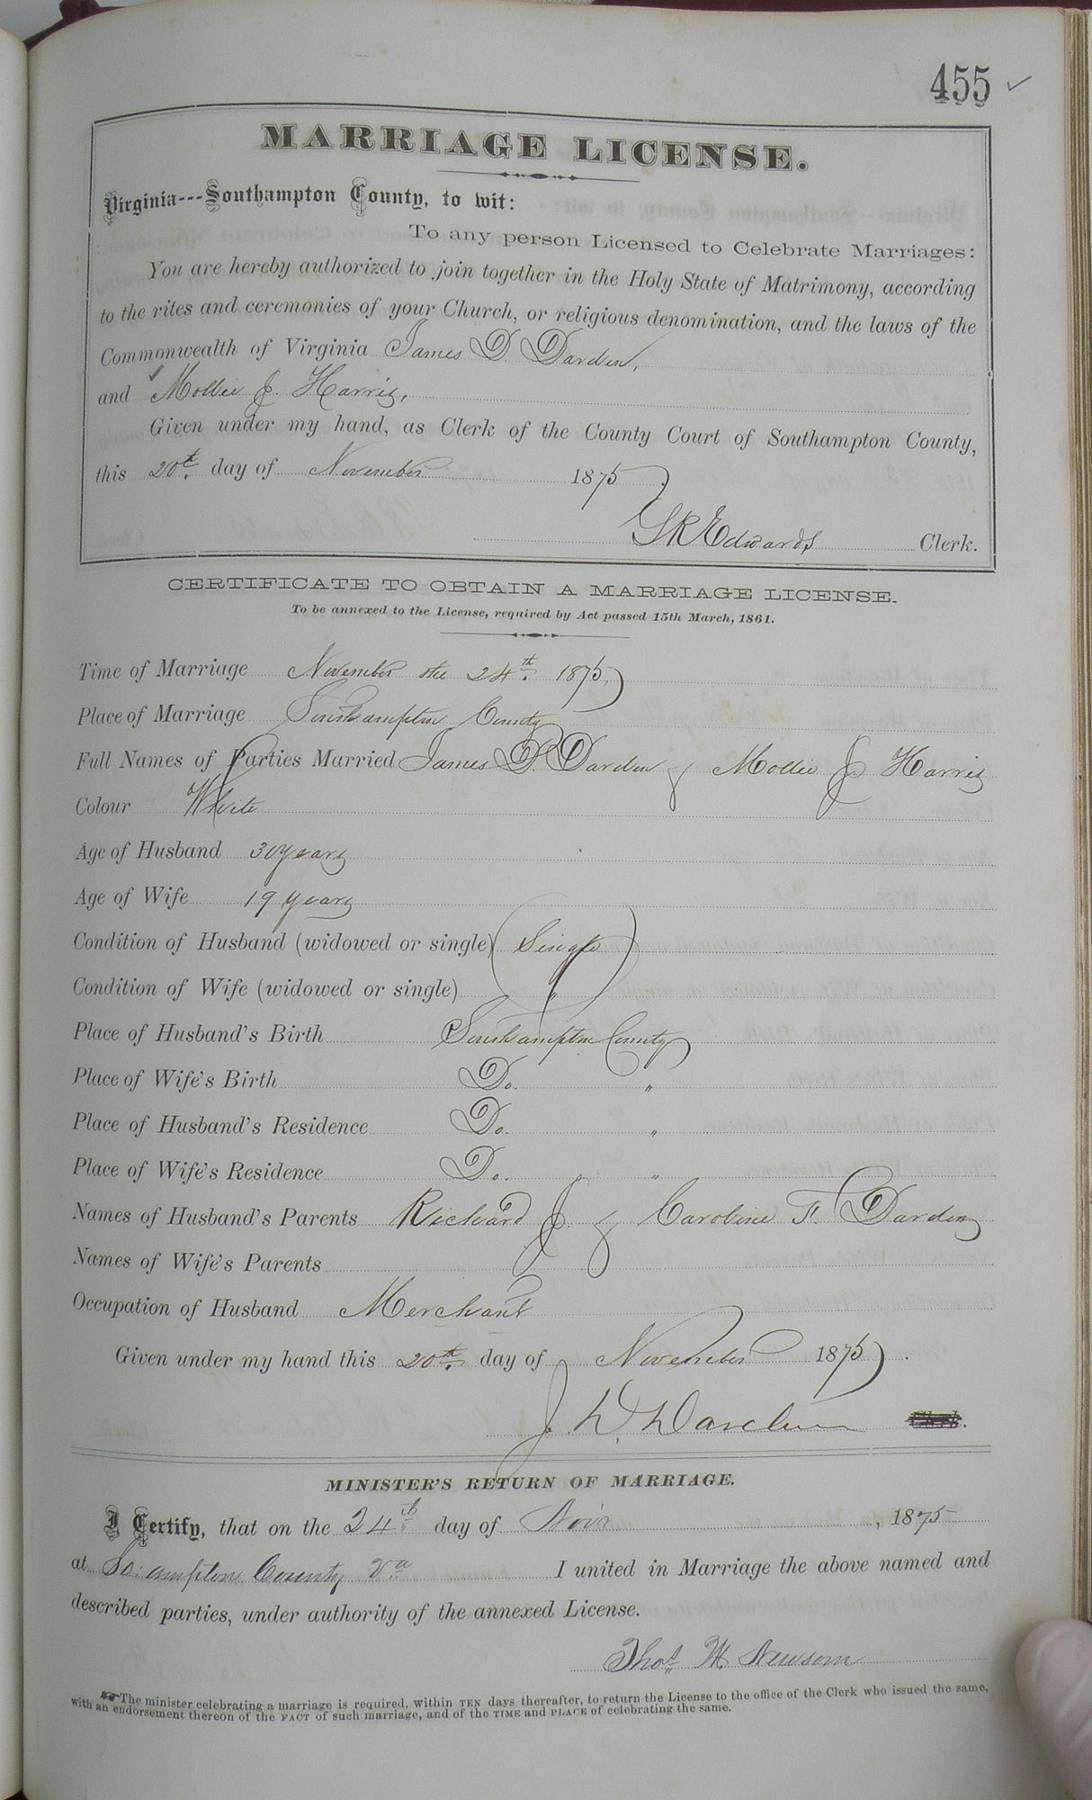 455 ✓
MARRIAGE LICENSE.
Virginia---Southampton County, to wit:
To any person Licensed to Celebrate Marriages:
You are hereby authorized to join together in the Holy State of Matrimony, according
to the rites and ceremonies of your Church, or religious denomination, and the laws of the
Commonwealth of Virginia James D. Darden,
and Mollie J. Harris,
Given under my hand, as Clerk of the County Court of Southampton County,
this 20th. day of November 1875
Edwards Clerk.
CERTIFICATE TO OBTAIN A MARRIAGE LICENSE.
To be annexed to the License, required by Act passed 15th March, 1861.
Time of Marriage November the 24th. 1875,
Place of Marriage Southampton County
Full Names of Parties Married James D. Darden & Mollie J. Harris
Colour White
Age of Husband 30 years
Age of Wife 19 years
Condition of Husband (widowed or single) Single
Condition of Wife (widowed or single) "
Place of Husband's Birth Southampton County
Place of Wife's Birth Do. "
Place of Husband's Residence Do. "
Place of Wife's Residence Do. "
Names of Husband's Parents Richard J. & Caroline F. Darden
Names of Wife's Parents
Occupation of Husband Merchant
Given under my hand this 20th. day of November 1875.
J. D. Darden
MINISTER'S RETURN OF MARRIAGE.
I Certify, that on the 24th day of Nov'r , 1875
at So:ampton County Va I united in Marriage the above named and
described parties, under authority of the annexed License.
Thos. W. Newsom
☞ The minister celebrating a marriage is required, within TEN days thereafter, to return the License to the office of the Clerk who issued the same,
with an endorsement thereon of the FACT of such marriage, and of the TIME and PLACE of celebrating the same.